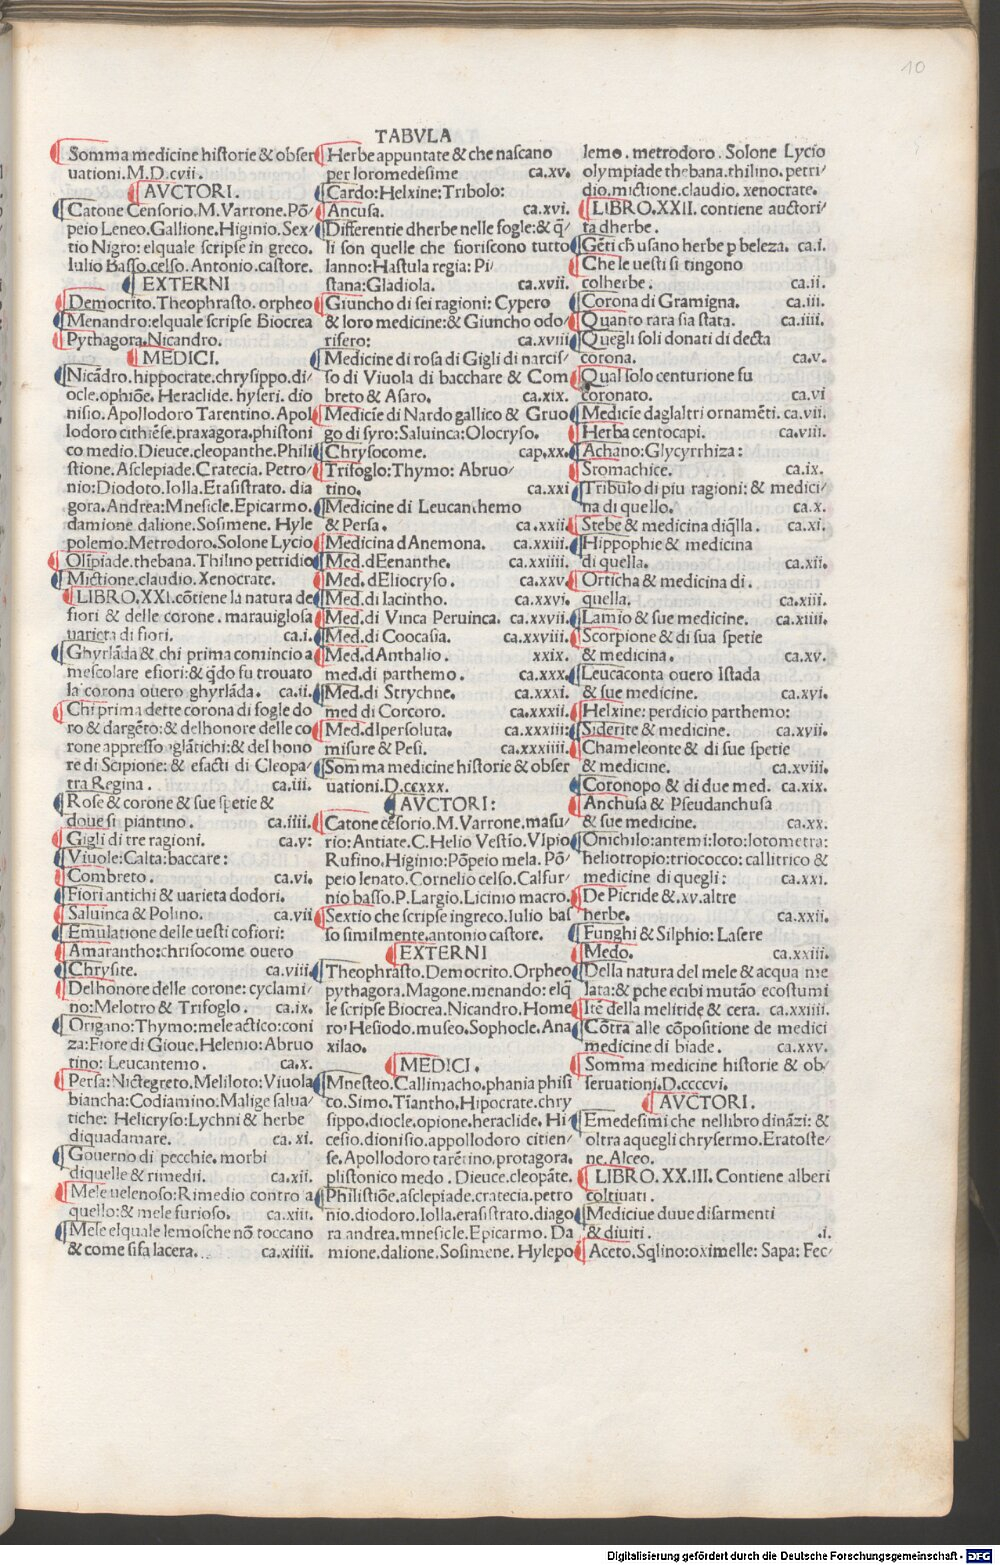 10
TABVLA
Somma medicine historie & obser
uationi.M.D.cvii.
AVCTORI.
Catone Censorio.M.Varrone.Põ/
peio Leneo.Gallione.Higinio.Sex/
tio Nigro: elquale scripse in greco.
Iulio Basso.celso.Antonio.castore.
EXTERNI
Democrito.Theophrasto.orpheo
Menandro:elquale scripse Biocrea
Pythagora.Nicandro.
MEDICI.
Nicãdro.hippocrate.chrysippo.di/
ocle.ophiõe.Heraclide.hyseri.dio
nisio.Apollodoro Tarentino.Apol
lodoro cithiẽse.praxagora.phistoni
co medio.Dieuce.cleopanthe.Phili
stione.Asclepiade.Cratecia.Petro/
nio:Diodoto.Iolla.Erasistrato.dia
gora.Andrea:Mnesicle.Epicarmo.
damione.dalione.Sosimene.Hyle
polemo.Metrodoro.Solone Lycio
Olĩpiade.thebana.Thilino petridio
Mictione.claudio.Xenocrate.
LIBRO.XXI.cõtiene la natura de
fiori & delle corone.marauiglosa
uarieta di fiori. ca.i.
Ghyrlãda & chi prima comincio a
mescolare efiori:& q̃do fu trouato
la corona ouero ghyrlãda. ca.ii.
Chi prima dette corona di fogle do
ro & dargẽto:& delhonore delle co
rone appresso glãtichi:& del hono
re di Scipione:& efacti di Cleopa/
tra Regina. ca.iii.
Rose & corone & sue spetie &
doue si piantino. ca.iiii.
Gigli di tre ragioni. ca.v:
Viuole:Calta:baccare:
Combreto. ca.vi.
Fiori antichi & uarieta dodori.
Saluinca & Polino. ca.vii
Emulatione delle uesti cofiori:
Amarantho:chrisocome ouero
Chrysite. ca.viii.
Delhonore delle corone: cyclami/
no:Melotro & Trifoglo. ca.ix.
Origano:Thymo:mele actico:coni
za:Fiore di Gioue.Helenio:Abruo
tino:Leucantemo. ca.x.
Persa:Nictegreto.Meliloto:Viuola
biancha:Codiamino:Malige salua/
tiche: Helicryso:Lychni & herbe
diquadamare. ca.xi.
Gouerno di pecchie.morbi
diquelle & rimedii. ca.xii.
Mele uelenoso:Rimedio contro a
quello:& mele furioso. ca.xiii.
Mele elquale lemosche nõ toccano
& come si fa lacera. ca.xiiii.
Herbe appuntate & che nascano
per loromedesime ca.xv.
Cardo:Helxine:Tribolo:
Ancusa. ca.xvi.
Differentie dherbe nelle fogle:& q̃/
li son quelle che fioriscono tutto
lanno:Hastula regia:Pi/
stana:Gladiola. ca.xvii.
Giuncho di sei ragioni:Cypero
& loro medicine:& Giuncho odo/
rifero: ca.xviii
Medicine di rosa di Gigli di narcis/
so di Viuola di bacchare & Com
breto & Asaro. ca.xix.
Medicĩe di Nardo gallico & Gruo
go di syro:Saluinca:Olocryso.
Chrysocome. cap.xx.
Trifoglo:Thymo:Abruo/
tino. ca.xxi
Medicine di Leucanthemo
& Persa. ca.xxii.
Medicina dAnemona. ca.xxiii.
Med.dEenanthe. ca.xxiiii.
Med.dEliocryso. ca.xxv.
Med.di Iacintho. ca.xxvi.
Med.di Vinca Peruinca. ca.xxvii.
Med.di Coocasia. ca.xxviii.
Med.dAnthalio. xxix.
med.di parthemo. ca.xxx.
Med.di Strychne. ca.xxxi.
med di Corcoro. ca.xxxii.
Med.dIpersoluta. ca.xxxiii:
misure & Pesi. ca.xxxiiii.
Somma medicine historie & obser
uationi.D.ccxxx.
AVCTORI:
Catone cẽsorio.M.Varrone.masu/
rio:Antiate.C.Helio Vestio.Vlpio
Rufino.Higinio:Põpeio mela.Põ/
peio lenato.Cornelio celso.Calfur/
nio basso.P.Largio.Licinio macro.
Sextio che scripse ingreco.Iulio bas
so similmente.antonio castore.
EXTERNI
Theophrasto.Democrito.Orpheo
pythagora.Magone.menando:elq̃
le scripse Biocrea.Nicandro.Home
ro:Hesiodo.museo.Sophocle.Ana
xilao.
MEDICI.
Mnesteo.Callimacho.phania phisi
co.Simo.Tĩantho.Hipocrate.chry
sippo.diocle.opione.heraclide.Hi/
cesio.dionisio.appollodoro citien/
se.Apollodoro tarẽtino.protagora.
plistonico medo.Dieuce.cleopãte.
Philistiõe.asclepiade.cratecia.petro
nio.diodoro.Iolla.erasistrato.diago
ra andrea.mnesicle.Epicarmo.Da
mione.dalione.Sosimene.Hylepo
lemo.metrodoro.Solone Lycio
olympiade thebana.thilino.petri/
dio.mictione.claudio.xenocrate.
LIBRO.XXII.contiene auctori/
ta dherbe.
Gẽti cħ usano herbe p beleza. ca.i.
Che le uesti si tingono
colherbe. ca.ii.
Corona di Gramigna. ca.iii.
Quanto rara sia stata. ca.iiii.
Quegli soli donati di decta
corona. ca.v.
Qual solo centurione fu
coronato. ca.vi
Medicĩe daglaltri ornamẽti. ca.vii.
Herba centocapi. ca.viii.
Achano:Glycyrrhiza:
Stomachice. ca.ix.
Tribulo di piu ragioni:& medici/
na di quello. ca.x.
Stebe & medicina diq̃lla. ca.xi.
Hippophie & medicina
di quella. ca.xii.
Orticha & medicina di.
quella. ca.xiii.
Lamio & sue medicine. ca.xiiii.
Scorpione & di sua spetie
& medicina. ca.xv.
Leucaconta ouero Istada
& sue medicine. ca.xvi.
Helxine: perdicio parthemo:
Siderite & medicine. ca.xvii.
Chameleonte & di sue spetie
& medicine. ca.xviii.
Coronopo & di due med. ca.xix.
Anchusa & Pseudanchusa
& sue medicine. ca.xx.
Onichilo:antemi:loto:lotometra:
heliotropio:triococco:callitrico &
medicine di quegli: ca.xxi.
De Picride &.xv.altre
herbe. ca.xxii.
Funghi & Silphio:Lasere
Medo. ca.xxiii.
Della natura del mele & acqua me
lata:& pche ecibi mutão ecostumi
Itẽ della melitide & cera. ca.xxiiii.
Cõtra alle cõpositione de medici
medicine di biade. ca.xxv.
Somma medicine historie & ob/
seruationi.D.ccccvi.
AVCTORI.
Emedesimi che nellibro dinãzi:&
oltra aquegli chrysermo.Eratoste/
ne.Alceo.
LIBRO.XX.III.Contiene alberi
coltiuati.
Mediciue duue disarmenti
& diuiti. .i.
Aceto.Sqlino:oximelle: Sapa: Fec/
Digitalisierung gefördert durch die Deutsche Forschungsgemeinschaft - DFG